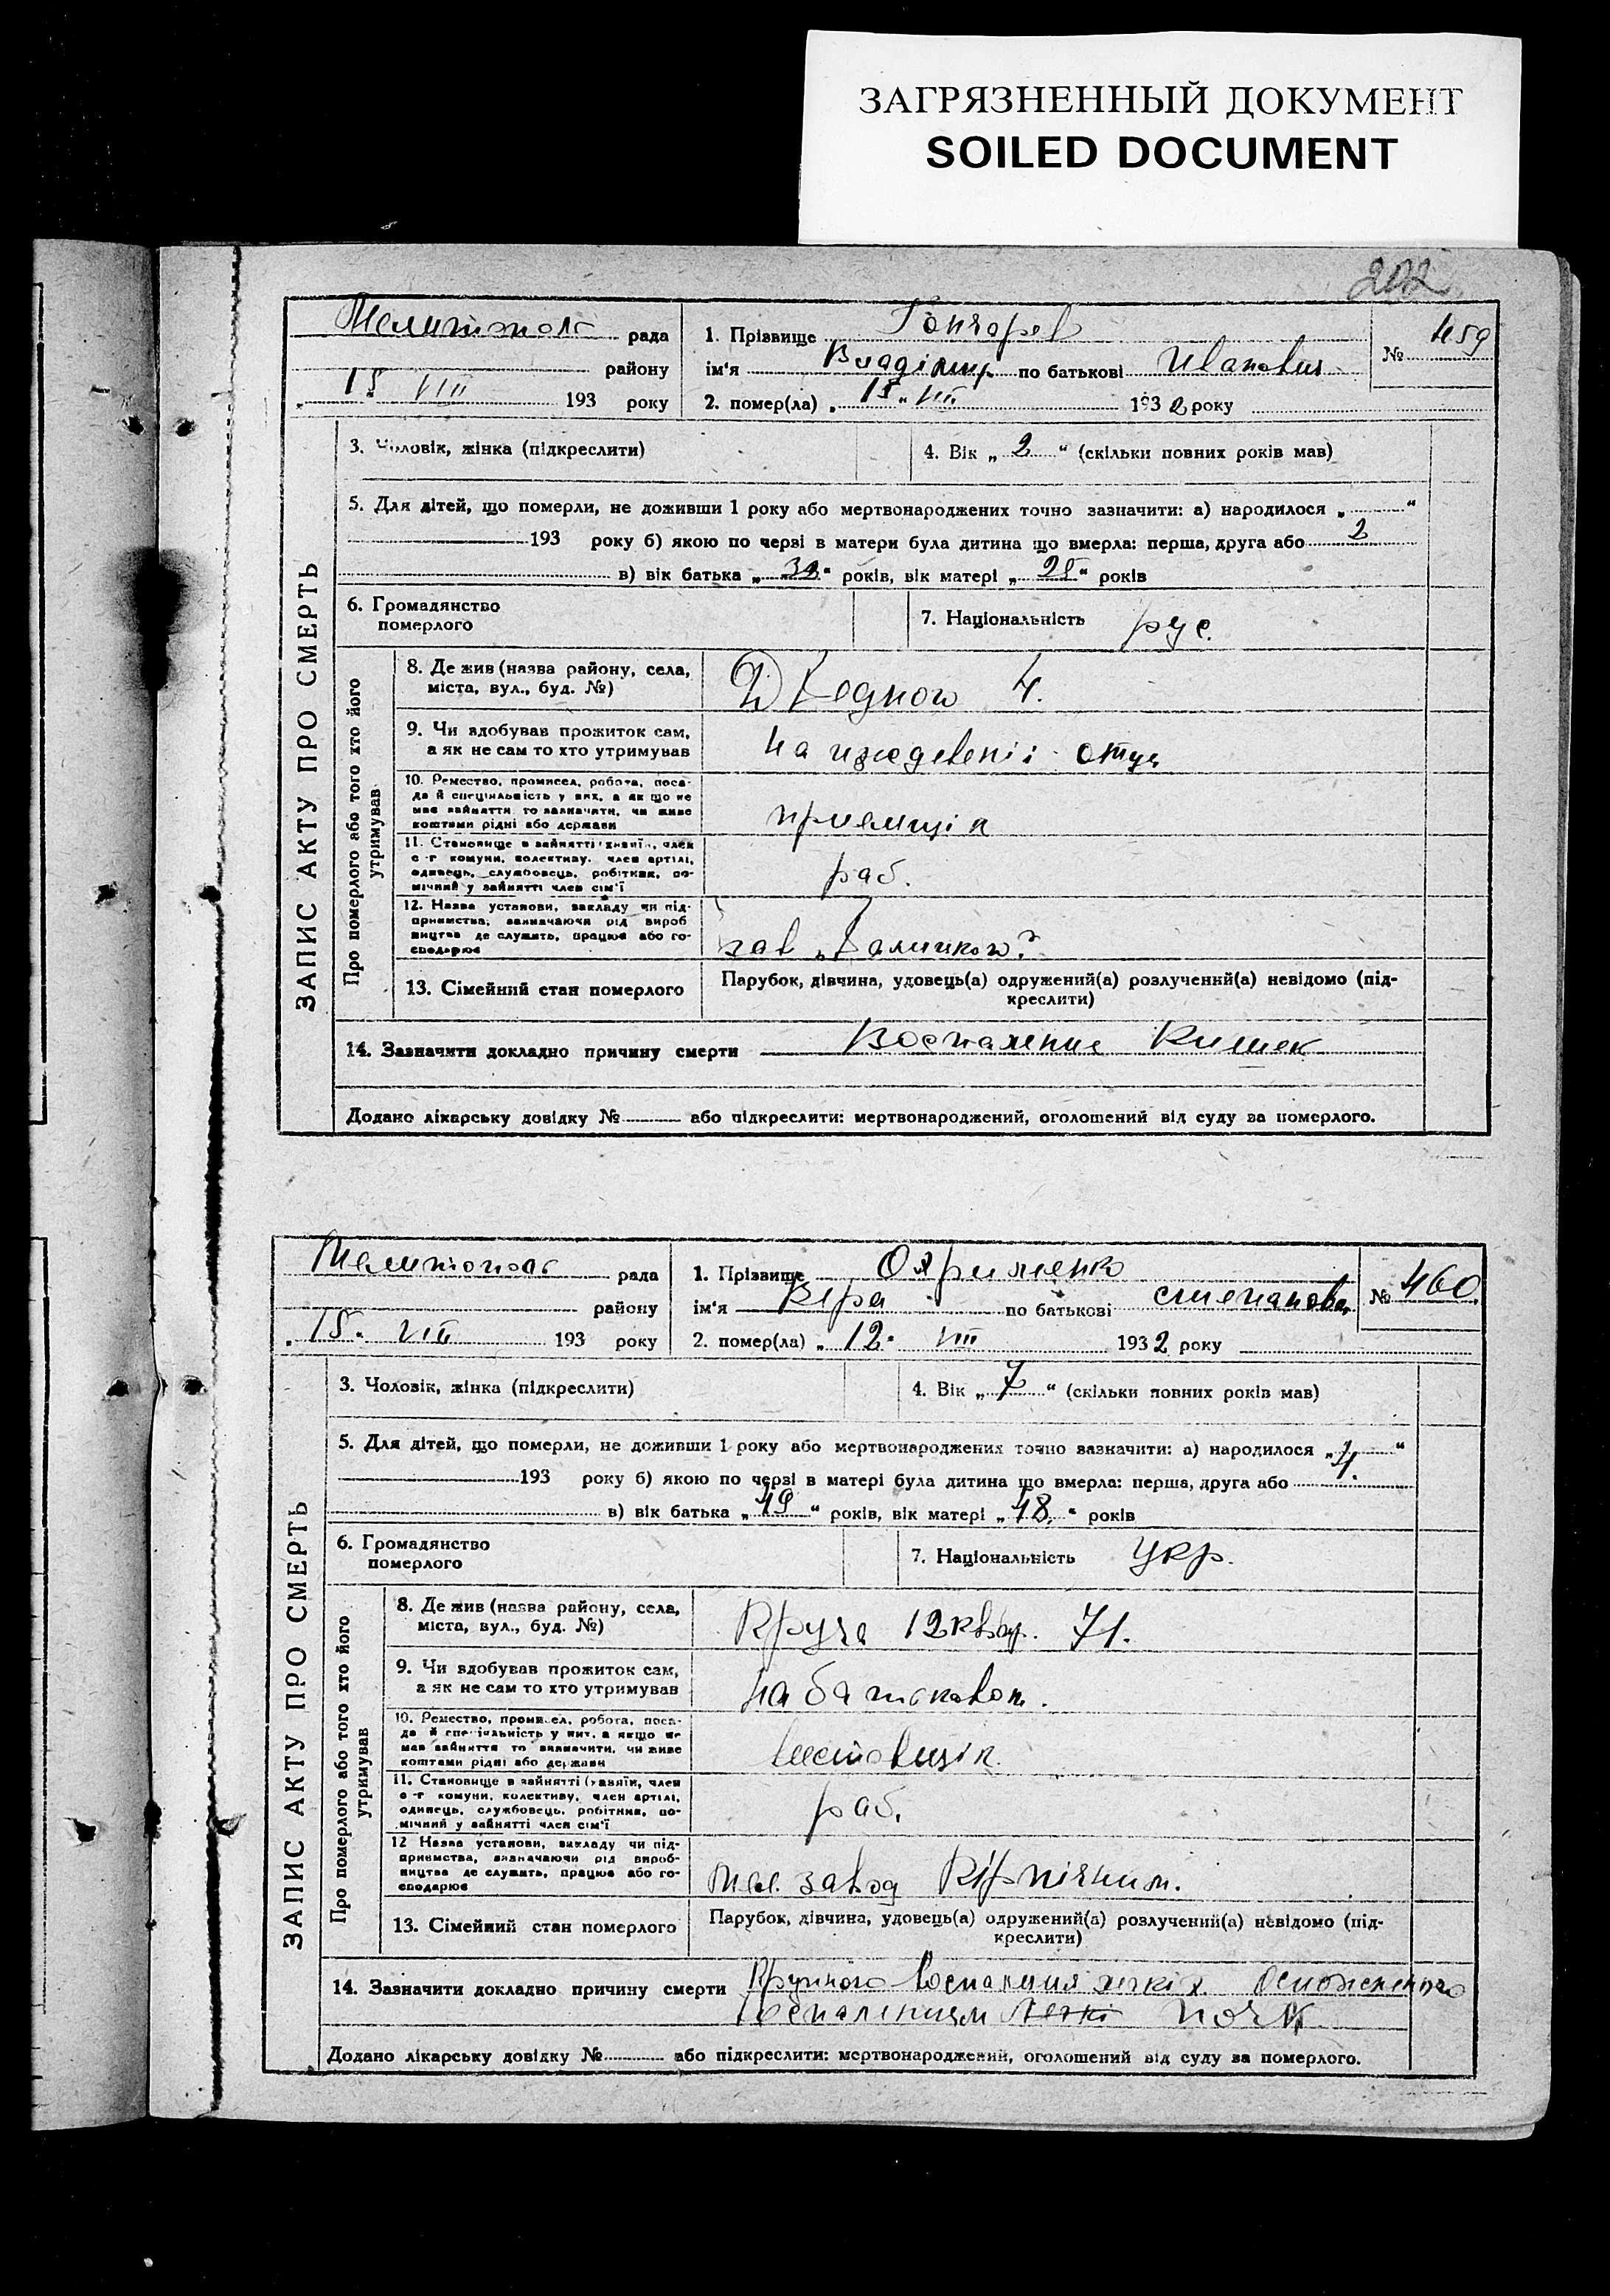 ЗАГРЯЗНЕННЫЙ ДОКУМЕНТ
SOILED DOCUMENT
202
Мелитополь рада
району
15 VIII 193 року
1. Прізвище Гончаров
ім'я Владімир по батькові Иванович
2. помер(ла) „ 15 " VIII 1932 року
№ 459
ЗАПИС АКТУ ПРО СМЕРТЬ
3. Чоловік, жінка (підкреслити)
4. Вік „ 2 " (скільки повних років мав)
5. Для дітей, що померли, не доживши 1 року або мертвонароджених точно зазначити: а) народилося „ "
193 року б) якою по черзі в матери була дитина що вмерла: перша, друга або 2
в) вік батька „ " років, вік матері „ " років
6. Громадянство
померлого
7. Національність рус.
Про померлого або того хто його
утримував
8. Де жив (назва району, села,
міста, вул., буд. №)
4.
9. Чи здобував прожиток сам,
а як не сам то хто утримував
на отца
10. Ремество, промисел, робота, поса-
да й спеціяльність у них, а як що не
мав зайняття то зазначити, чи живе
коштами рідні або держави
приемщік
11. Становище в зайнятті (хазяїн, член
с-г комуни, колективу, член артілі,
одинець, службовець, робітник, по-
мічний у зайнятті член сім'ї
раб.
12. Назва установи, закладу чи під-
приємства, зазначаючи рід вироб
ництва де служить, працює або го-
сподарює
зав
13. Сімейний стан померлого
Парубок, дівчина, удовець(а) одружений(а) розлучений(а) невідомо (під-
креслити)
14. Зазначити докладно причину смерти Воспаление Кишек
Додано лікарську довідку № або підкреслити: мертвонароджений, оголошений від суду за померлого.
Мелитополь рада
району
„ 15 " VIII 193 року
1. Прізвище
ім'я Вера по батькові
2. помер(ла) „ 12 " VIII 1932 року
№ 460
ЗАПИС АКТУ ПРО СМЕРТЬ
3. Чоловік, жінка (підкреслити)
4. Вік „ 7 " (скільки повних років мав)
5. Для дітей, що померли, не доживши 1 року або мертвонароджених точно зазначити: а) народилося „ "
193 року б) якою по черзі в матері була дитина що вмерла: перша, друга або 4.
в) вік батька „ 49 " років, вік матері „ 48 " років
6. Громадянство
померлого
7. Національність Укр.
Про померлого або того хто його
утримував
8. Де жив (назва району, села,
міста, вул., буд. №)
Круча 12 71.
9. Чи здобував прожиток сам,
а як не сам то хто утримував
10. Ремество, промисел, робота, поса-
да й спеціяльність у них, а якщо не
мав зайняття то зазначити, чи живе
коштами рідні або держави
11. Становище в зайнятті (хазяїн, член
с-г комуни, колективу, член артілі,
одинець, службовець, робітник, по-
мічний у зайнятті член сім'ї
раб.
12 Назва установи, закладу чи під-
приємства, зазначаючи рід вироб-
ництва де служить, працює або го-
сподарює
Мел. завод
13. Сімейний стан померлого
Парубок, дівчина, удовець(а) одружений(а) розлучений(а) невідомо (під-
креслити)
14. Зазначити докладно причину смерти
Додано лікарську довідку № або підкреслити: мертвонароджений, оголошений від суду за померлого.